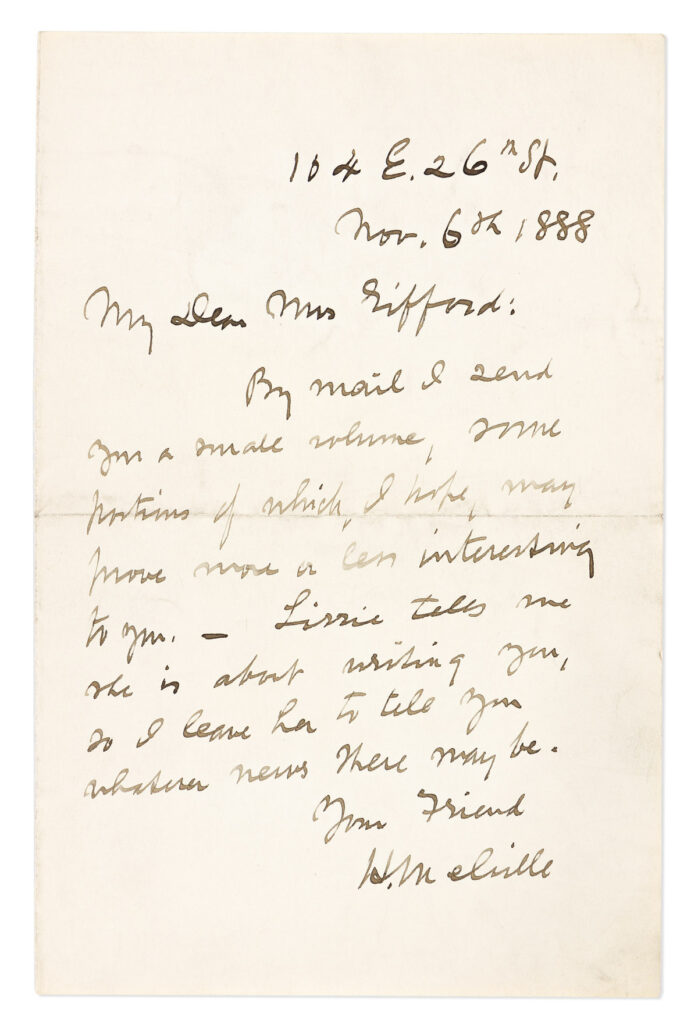 104 E. 26th St.
Nov. 6th 1888
My Dear Mrs Gifford:
By mail I send
you a small volume, some
portions of which, I hope, may
prove more or less interesting
to you. — Lizzie tells me
she is about writing you,
so I leave her to tell you
whatever news there may be.
Your Friend
H. Melville